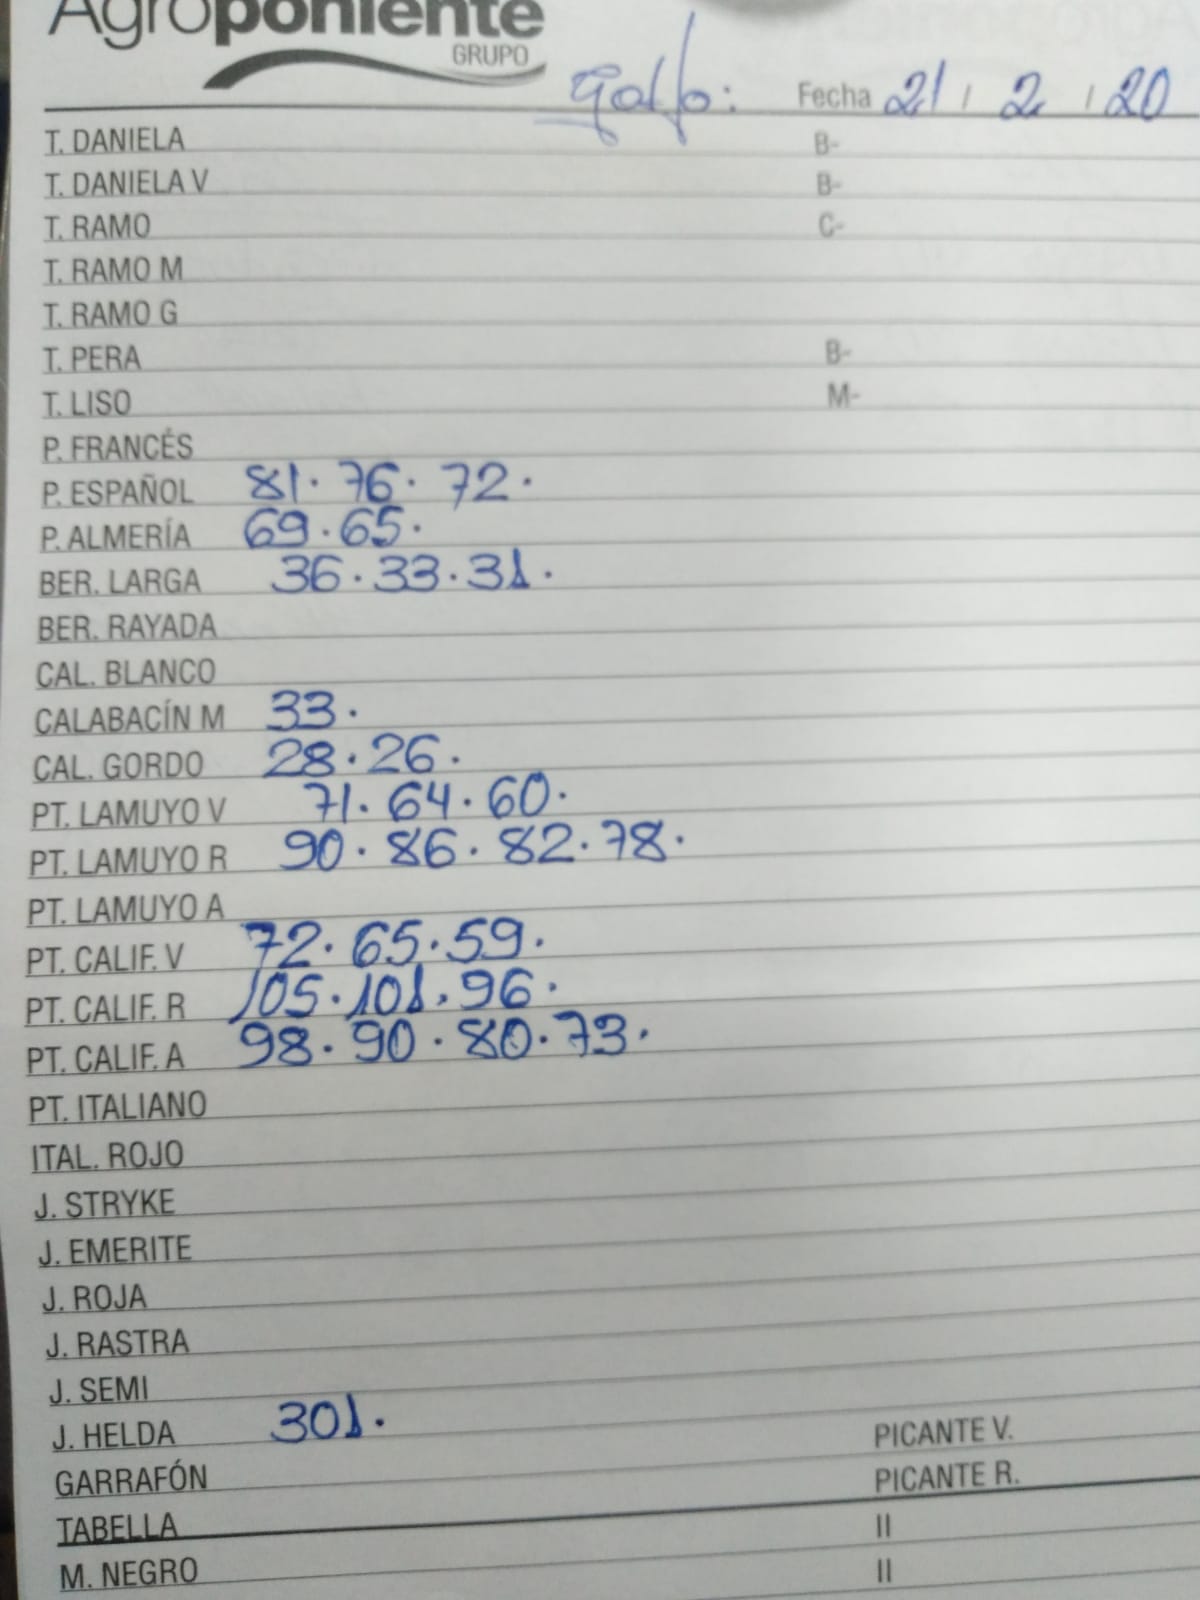 Agroponiente
GRUPO
golfo: Fecha 21 / 2 / 20
T. DANIELA B-
T. DANIELA V B-
T. RAMO C-
T. RAMO M
T. RAMO G
T. PERA B-
T. LISO M-
P. FRANCÉS
P. ESPAÑOL 81. 76. 72.
P. ALMERÍA 69. 65.
BER. LARGA 36. 33. 31.
BER. RAYADA
CAL. BLANCO
CALABACÍN M 33.
CAL. GORDO 28. 26.
PT. LAMUYO V 71. 64. 60.
PT. LAMUYO R 90. 86. 82. 78.
PT. LAMUYO A
PT. CALIF. V 72. 65. 59.
PT. CALIF. R 105. 101. 96.
PT. CALIF. A 98. 90. 80. 73.
PT. ITALIANO
ITAL. ROJO
J. STRYKE
J. EMERITE
J. ROJA
J. RASTRA
J. SEMI
J. HELDA 301. PICANTE V.
GARRAFÓN PICANTE R.
TABELLA II
M. NEGRO II